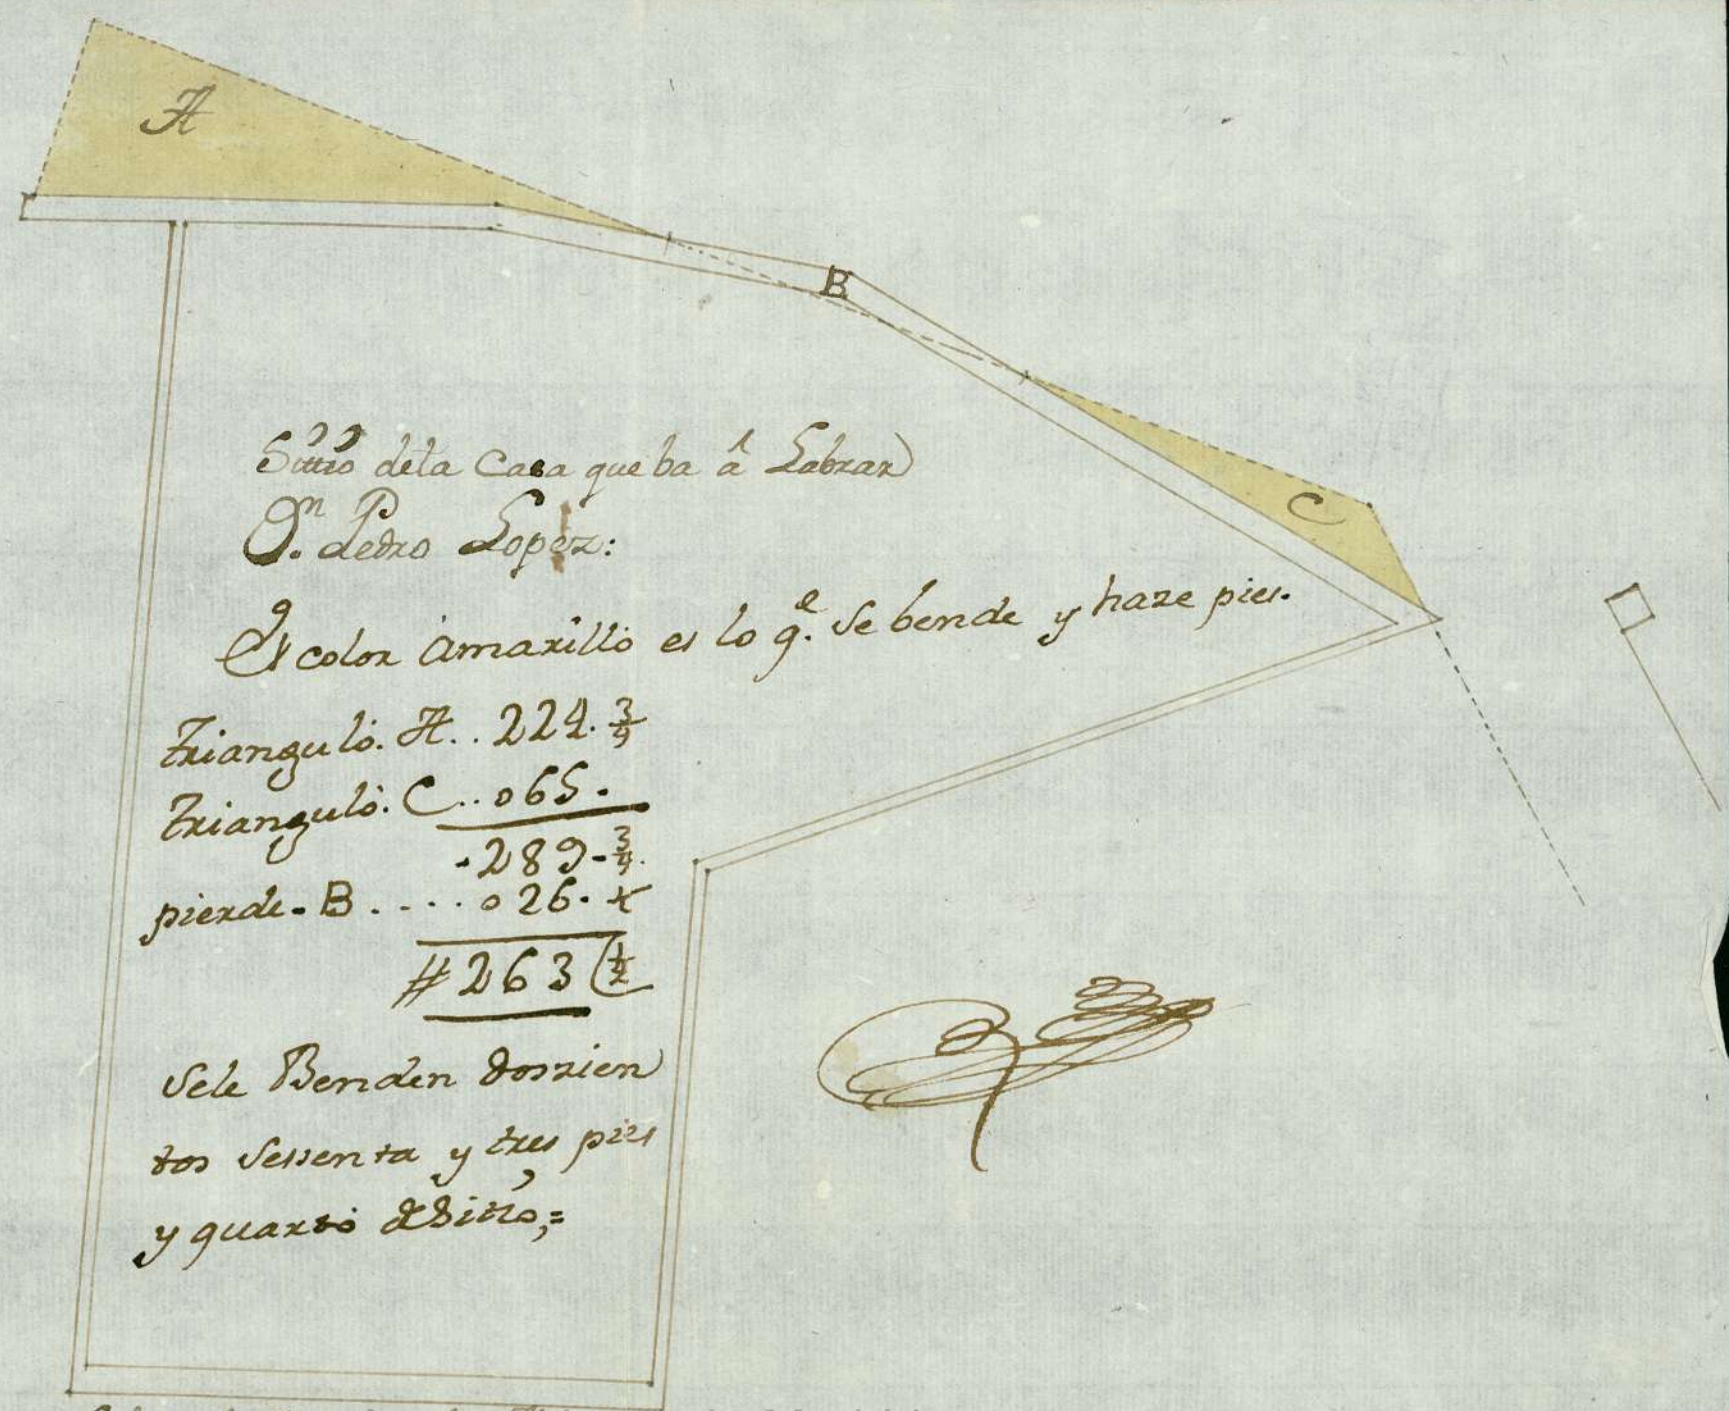 A
B
Sittio dela Casa que ba â Labrar
C
Dn. Pedro Lopez:
El color amarillo es lo qe. se bende y haze pies.
triangulo. A.. 224. 3/4
triangulo. C.. 065.
.289-3/4.
pierde-B..... 026.
#263 1/2
Sele Benden dorzien
tos Sessenta y tres pies
y quarto de Sitio,=